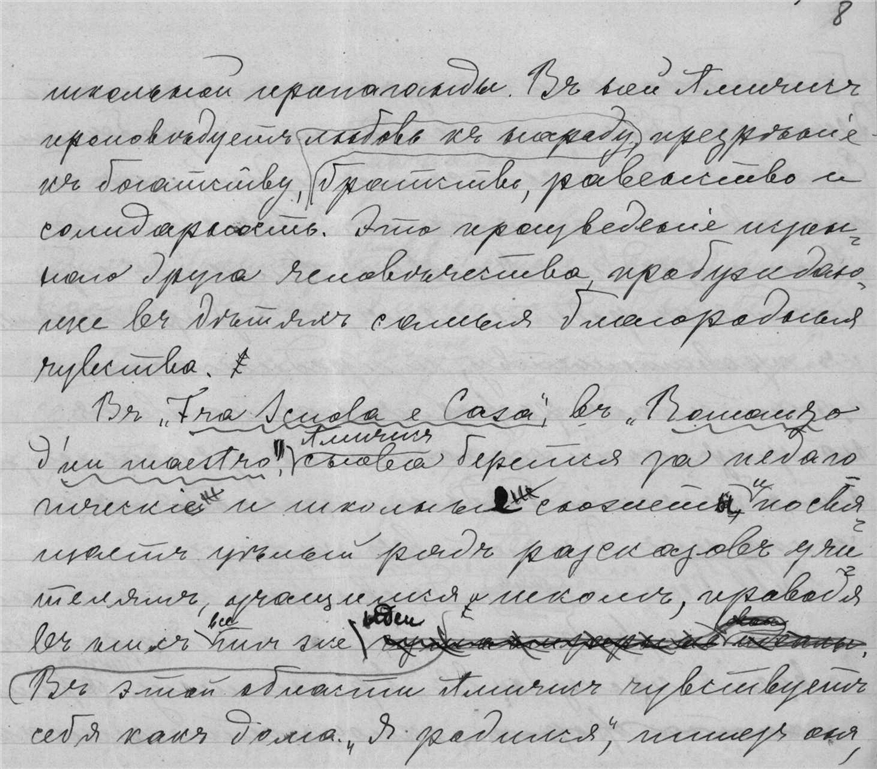 8
школьной пропаганды. Въ ней Амичисъ
проповѣдуетъ любовь къ народу, презрѣніе
къ богатству, братство, равенство и
солидарность. Это произведеніе истин-
наго друга человѣчества, пробуждаю-
щее въ дѣтяхъ самыя благородныя
чувства.
Въ „Fra Scuola e Casa“, въ „Romanzo
d'un maestro“, Амичисъ снова берется за педаго
гическіе и школьные сюжеты, и посвя
щаетъ цѣлый рядъ разсказовъ учи
телямъ, учащимся и школѣ, проводя
въ нихъ все тѣ же идеи
Въ этой области Амичисъ чувствуетъ
себя какъ дома. „Я родился“, пишетъ онъ,